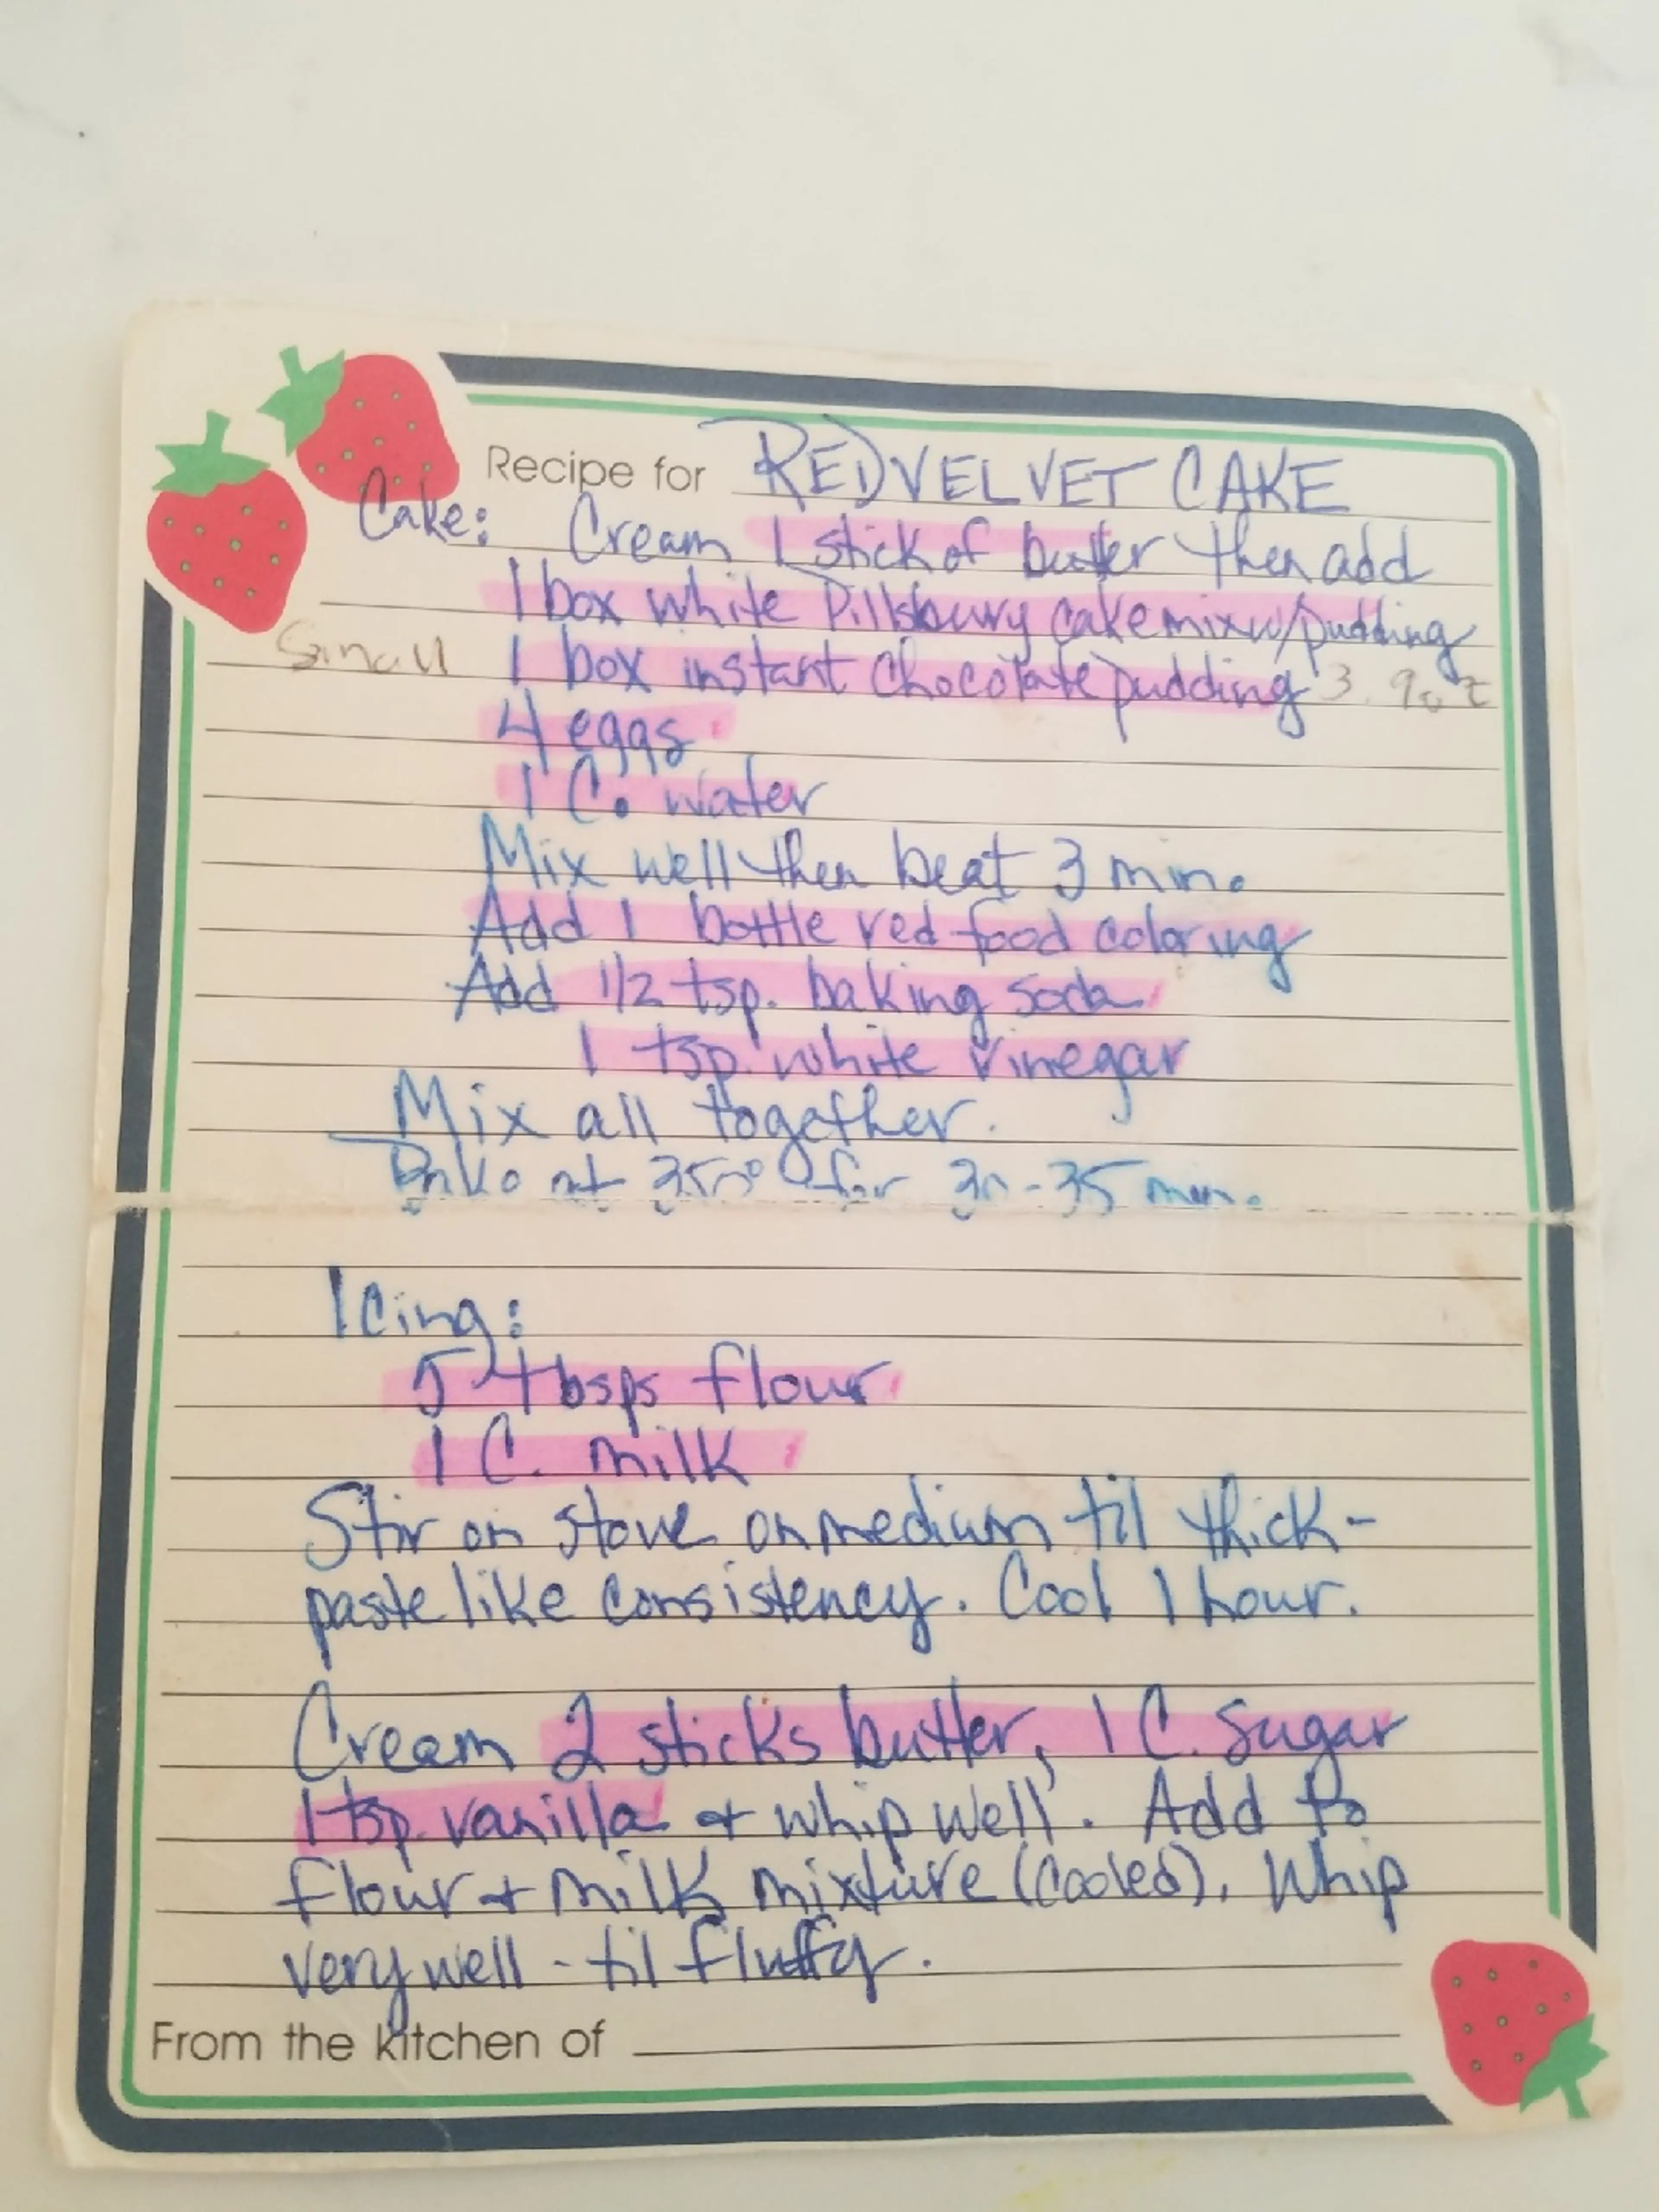 Recipe for REDVELVET CAKE
Cake: Cream 1 stick of butter then add
1 box white Pillsbury cake mix w/pudding
Small 1 box instant chocolate pudding 3.9oz
4 eggs
1 C. water
Mix well then beat 3 min.
Add 1 bottle red food coloring
Add 1/2 tsp. baking soda
1 tsp. white vinegar
Mix all together.
Bake at 350° for 30-35 min.
Icing:
5 tbsps flour
1 C. milk
Stir on stove on medium til thick-
paste like consistency. Cool 1 hour.
Cream 2 sticks butter, 1 C. sugar
1 tsp. vanilla + whip well. Add to
flour + milk mixture (cooled). Whip
very well - til fluffy.
From the kitchen of